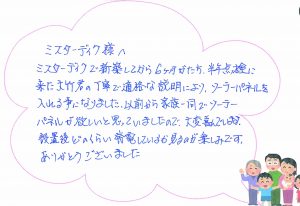 ミスターデイク様へ
ミスターデイクで新築してから6ヶ月がたち、半年点検に
来た竹君の丁寧で適格な説明により、ソーラーパネルを
入れる事になりました。以前から家族一同でソーラー
パネルが欲しいと思っていましたので、大変喜んでいます。
設置後どのくらい発電しているか見るのが楽しみです。
ありがとうございました